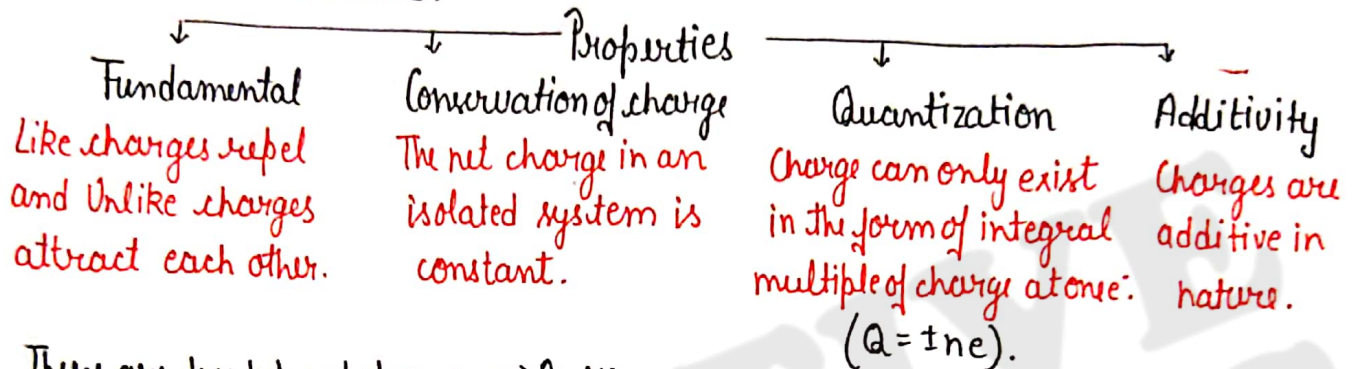 Properties
Fundamental
Like charges repel
and Unlike charges
attract each other.
Conservation of charge
The net charge in an
isolated system is
constant.
Quantization
Charge can only exist
in the form of integral
multiple of charge
(Q = ±ne).
Additivity
Charges are
additive in
nature.
There are